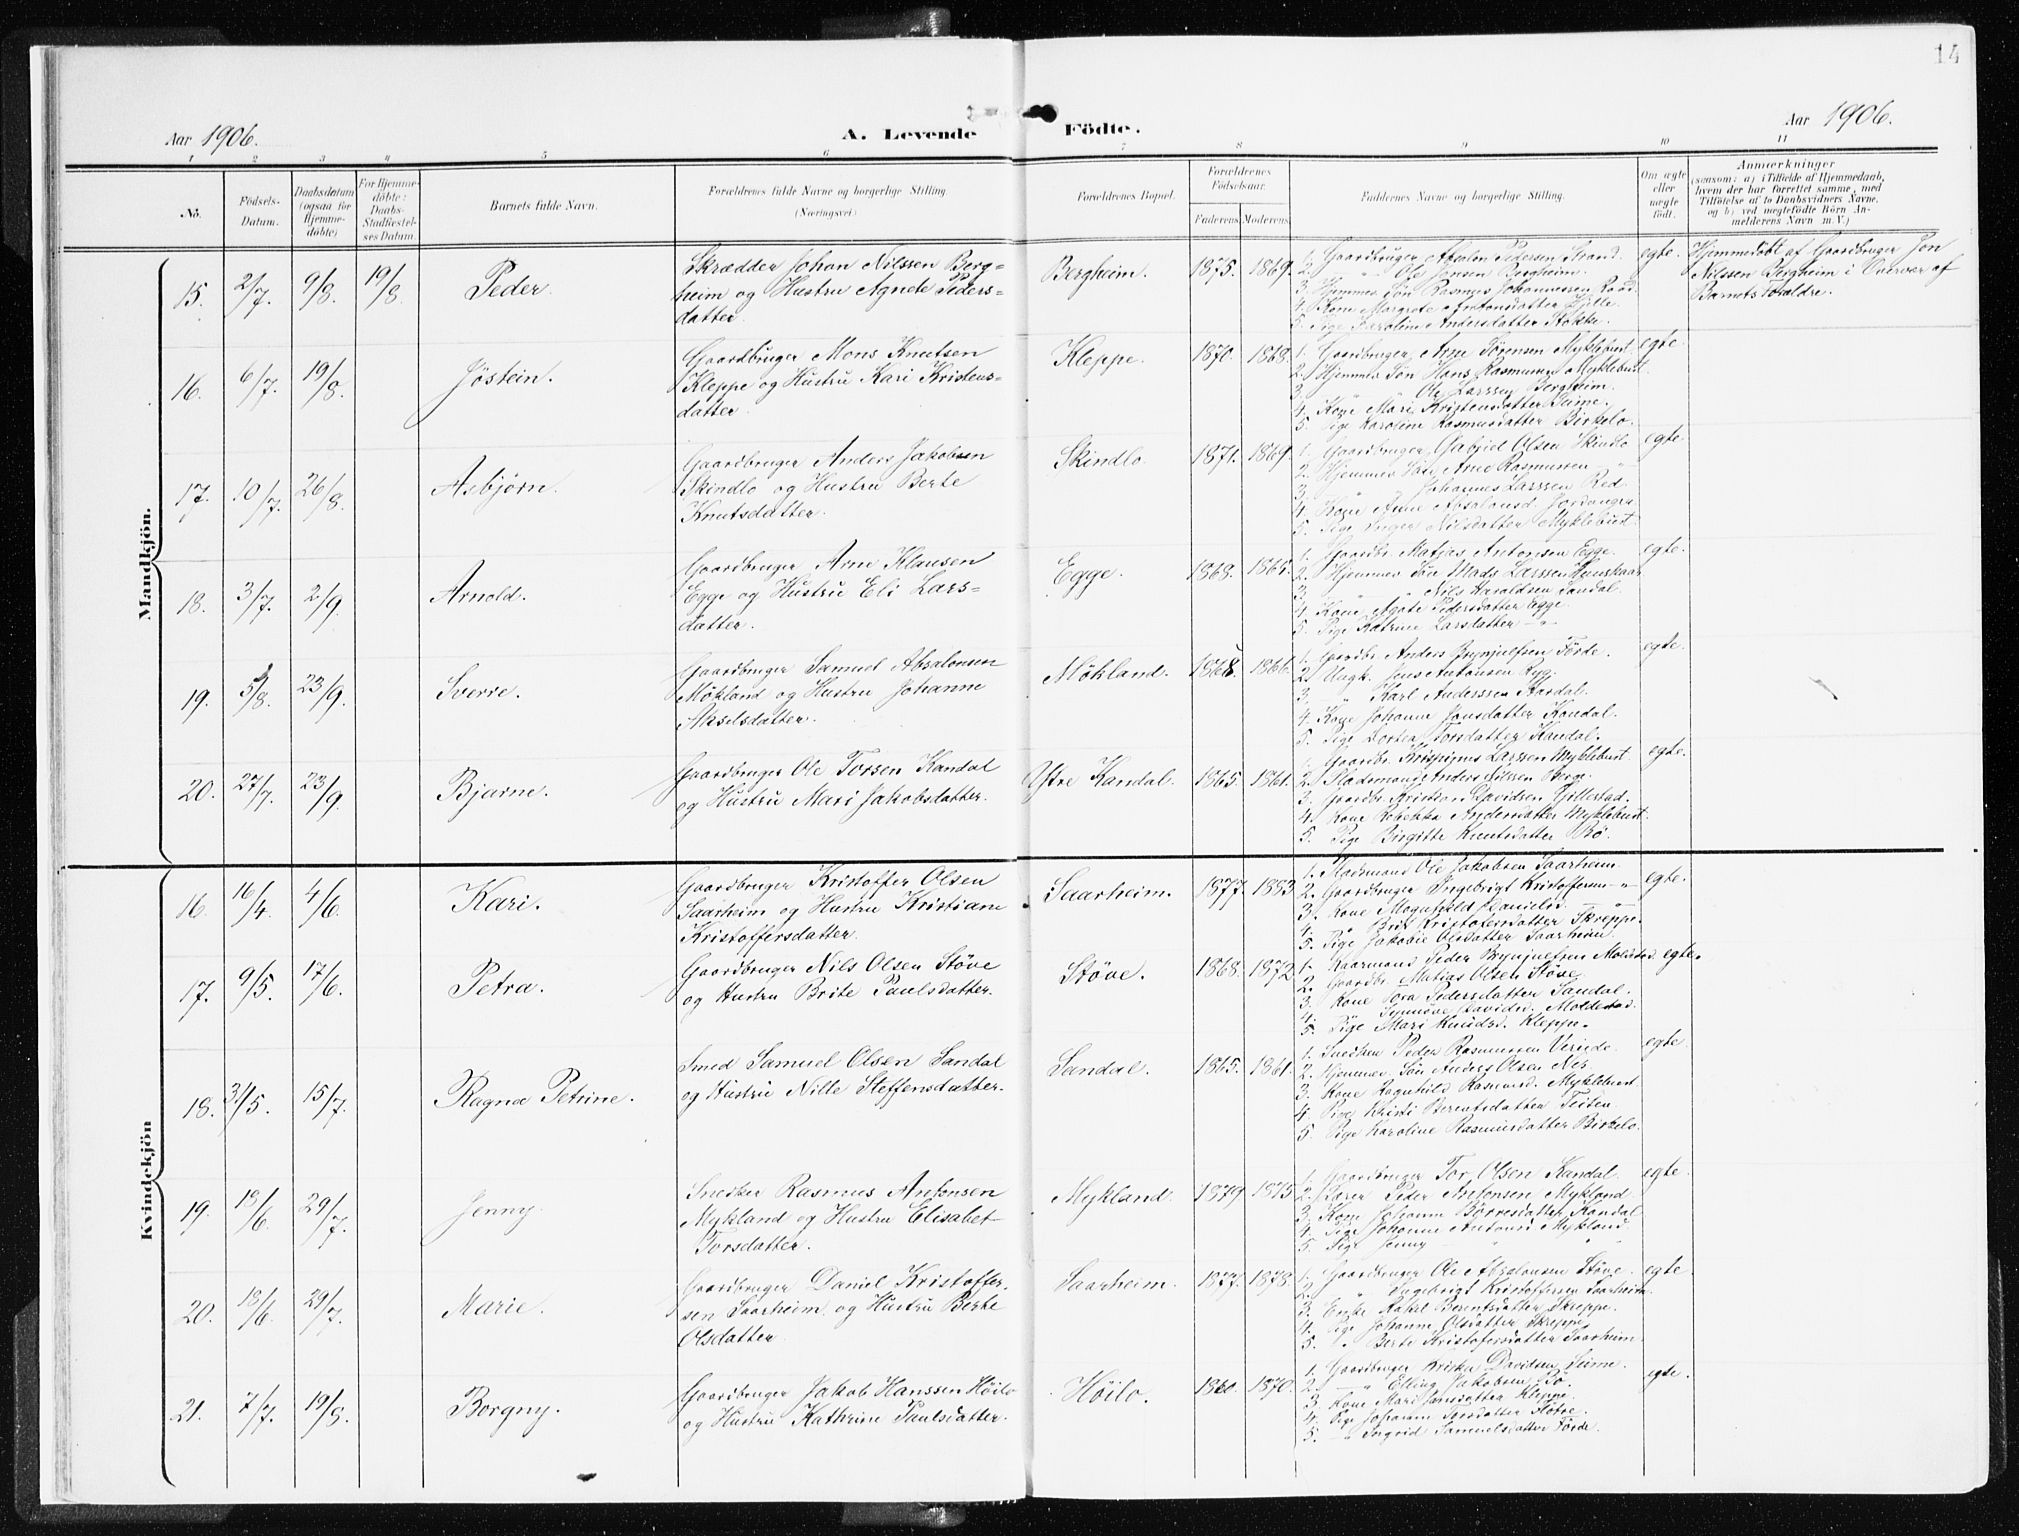 14
Aar 1906.
A. Levende Födte.
Aar 1906.
1 2 3 4 5 6 7 8 9 10 11
No.
Födsels-Datum.
Daabsdatum (ogsaa for Hjemme-döbte)
For Hjemme-döbte: Daabs-Stadfæstel-ses Datum
Barnets fulde Navn.
Forældrenes fulde Navne og borgerlige Stilling. (Næringsvei)
Forældrenes Bopæl.
Forældrenes Födselsaar.
Faderens. Moderens.
Faddernes Navne og borgerlige Stilling.
Om ægte eller uægte födt.
Anmærkninger (saasom: a) i Tilfælde af Hjemmedaab, hvem der har forrettet samme, med Tilföielse af to Daabsvidners Navne, og b) ved uægtefödte Börn An-melderens Navn m. V.)
Mandkjön.
15. 2/7. 9/8. 19/8. Peder.
Skrædder Johan Nilssen Berg=
heim og Hustru Agnete Peders=
datter.
Bergheim. 1875. 1869.
1. Gaardbruger Absalon Pedersen Strand.
2. " Ole Jonsen Bergheim.
3. Hjemmev. Søn Rasmus Johannessen
4. Kone Margrete Antonsdatter Hjelle.
5. Pige Karoline Andersdatter Stokke.
egte.
Hjemmedöbt af Gaardbruger Jon
Nilssen Bergheim i Overvær af
Barnets Foraldre.
16. 6/7. 19/8. Jöstein.
Gaardbruger Mons Knutsen
Kleppe og Hustru Kari Kristens=
datter.
Kleppe. 1870. 1868.
1. Gaardbruger Arne Sörensen Myklebust.
2. Hjemmev. Søn Hans Rasmussen Myklebust
3. " Ole Larssen Bergheim.
4. Kone Mari Kristensdatter Seime.
5. Pige Karoline Rasmusdatter Birkelo.
egte.
17. 10/7. 26/8. Asbjörn.
Gaardbruger Anders Jakobsen
Skindlo og Hustru Berte
Knutsdatter.
Skindlo 1871. 1869.
1. Gaardbruger Gabriel Olsen Skindlo
2. Hjemmev. Arne Rasmussen "
3. " Johannes Larssen Red.
4. Kone Anne Absalonsd. Jordanger
5. Pige Inger Nilsdatter Myklebust.
egte.
18. 3/7. 2/9. Arnold.
Gaardbruger Arne Klausen
Egge og Hustru Eli Lars-
datter.
Egge. 1868.
1. Gaardbr. Matias Antonsen Egge.
2. Hjemmev. Søn Mads Larssen
3. " Nils Haraldsen Sandal.
4. Kone Agate Pedersdatter Egge.
5. Pige Katrine Larsdatter "
egte.
19. 5/8. 23/9. Sverre.
Gaardbruger Samuel Absalonsen
Mökland og Hustru Johanne
Akselsdatter.
Mökland. 1866.
1. Gaardbr. Anders Brynjulfsen Förde.
2. Ungk. Jens Antonsen Ryg.
3. " Karl Anderssen Aardal.
4. Kone Johanne Jonsdatter Kandal.
5. Pige Dorte Torsdatter Kandal.
egte.
20. 27/7. 23/9. Bjarne.
Gaardbruger Ole Torsen Kandal
og Hustru Mari Jakobsdatter.
Ytre Kandal. 1865. 1861.
1. Gaardbr. Larssen Myklebust.
2. Pladsmand Anders Nilssen Berge.
3. Gaardbr. Kristian Davidsen Gillestad.
4. Kone Rebekka Andersdatter Myklebust.
5. Pige Birgitte Knutsdatter Bö.
egte.
Kvindekjön
16. 16/4. 4/6. Kari.
Gaardbruger Kristoffer Olsen
Saarheim og Hustru Kristiane
Kristoffersdatter.
Saarheim. 1877. 1883
1. Pladsmand Ole Jakobsen Saarheim.
2. Gaardbruger Ingebrigt Kristoffersen "
3. Kone Magnhild Danielsd. "
4. " Brit Kristofersdatter Skreppe.
5. Pige Jakobie Olsdatter Saarheim.
egte.
17. 9/5. 17/6. Petra.
Gaardbruger Nils Olsen Stöve
og Hustru Brite Paulsdatter.
Stöve. 1868. 1872
1. Kaarmand Peder Brynjulfsen Molestad
2. Gaardbr. Matias Olsen Stöve
3. Kone Tora Pedersdatter Sandal.
4. " Synnöve Davidsd. Moldestad.
5. Pige Mari Knudsd. Kleppe.
egte.
18. 31/5. 15/7. Ragna Petrine.
Smed Samuel Olsen Sandal
og Hustru Nille Steffensdatter.
Sandal. 1865. 1861.
1. Snedker Peder Rasmussen Vereide.
2. Hjemmev. Søn Anders Olsen Nes
3. Kone Ragnhild Rasmusd. Myklebust.
4. Pige Kristi Berentsdatter Teiten.
5. Pige Karoline Rasmusdatter Birkelo.
egte
19. 13/6. 29/7. Jenny.
Snedker Rasmus Antonsen
Mykland og Hustru Elisabet
Torsdatter.
Mykland. 1879. 1875
1. Gaardbruger Tor Olsen Kandal.
2. Lærer Peder Antonsen Mykland
3. Kone Johanne Börresdatter Kandal
4. Pige Johanne Antonsd. Mykland.
5. Pige Jenny " "
egte.
20. 13/6. 29/7. Marie.
Gaardbruger Daniel Kristoffer-
sen Saarheim og Hustru Berte
Olsdatter.
Saarheim. 1877. 1878.
1. Gaardbruger Ole Absalonsen Stöve.
2. " Ingebrigt Kristoffersen Saarheim.
3. Enke Rakel Berentsdatter Skreppe.
4. Pige Johanne Olsdatter Skreppe
5. " Berte Kristofersdatter Saarheim.
egte.
21. 7/7. 19/8. Borgny.
Gaardbruger Jakob Hanssen Höilo
og Hustru Kathrine Paulsdatter.
Höilo. 1870.
1. Gaardbruger Davidsen Seime.
2. " Elling Jakobsen Bö.
3. Kone Mari Jansdatter Kleppe.
4. Pige Johanne Larsdatter
5. " Ingrid Samuelsdatter Förde.
egte.